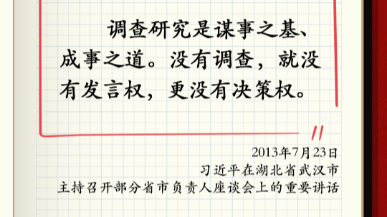 调查研究是谋事之基、
成事之道。没有调查，就没
有发言权，更没有决策权。
2013年7月23日
习近平在湖北省武汉市
主持召开部分省市负责人座谈会上的重要讲话